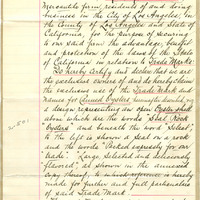 Mercantile firm, residents of and doing
business in the City of Los Angeles, in
the County of Los Angeles and State of
California, for the purpose of securing
to our said firm the advantage, benefit
and protection of the laws of the State
of California in relation to Trade Marks
Do hereby Certify and declare that we are
the exclusive owners of and do hereby claim
the exclusive use of the Trade Mark and
names for Canned Oysters
a design representing an Oyster
above which are the words "Seal Rock
Oysters" and beneath the word "Select",
to the left is shown a seal on a rock
and the words "Packed expressly for our
trade". "Large selected and deliciously
flavored", as shown in the annexed
copy thereof, to which reference is hereby
made for further and full particulars
of said Trade Mark